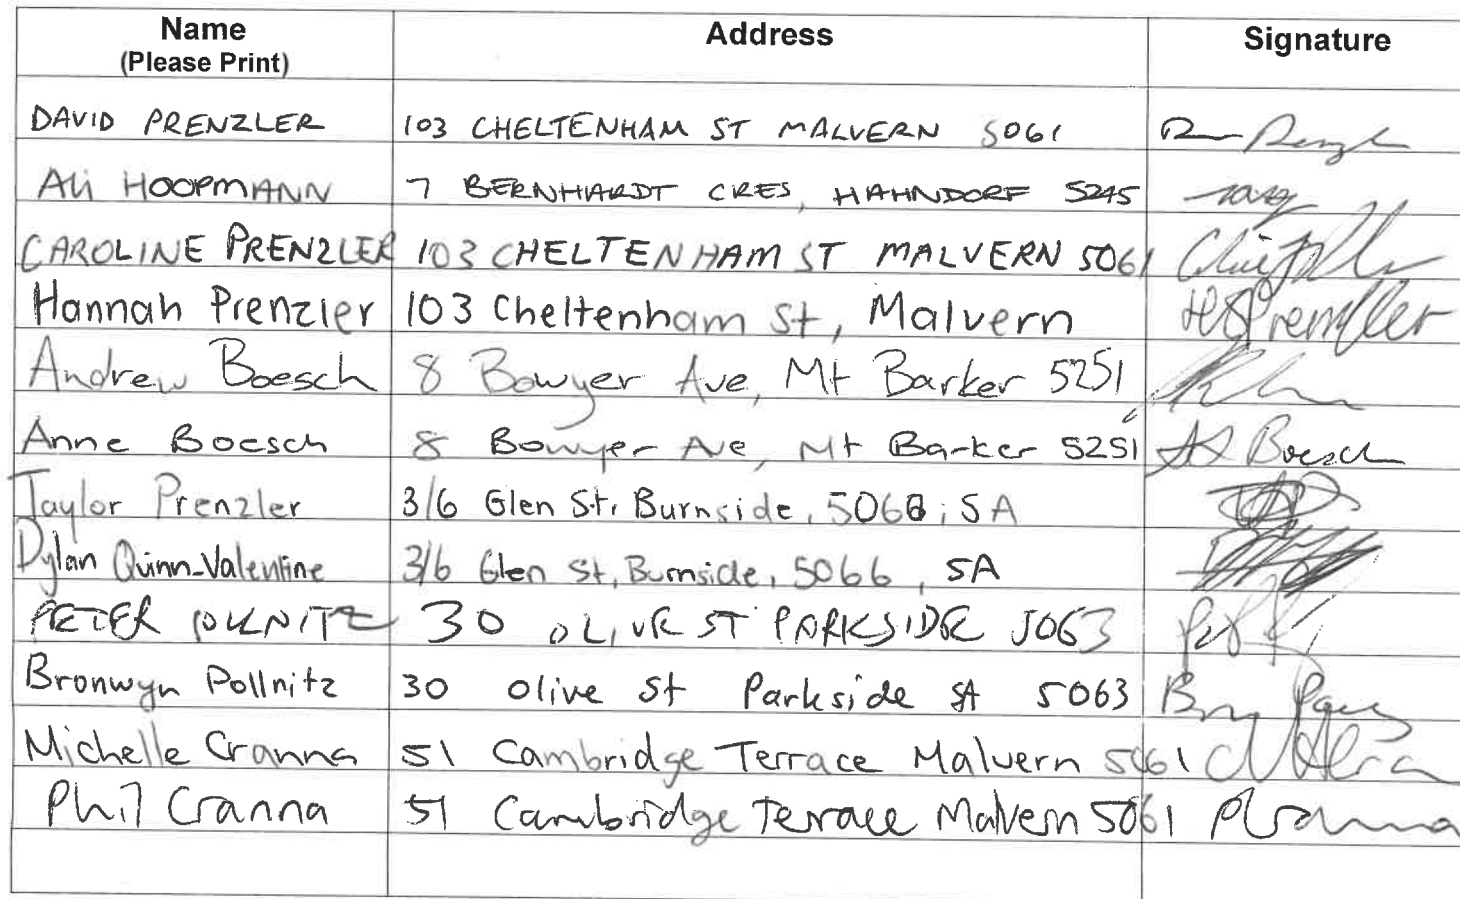 Name Address Signature
(Please Print)
DAVID PRENZLER 103 CHELTENHAM ST MALVERN 5061
Ali HOOPMANN 7 BERNHARDT CRES, HAHNDORF 5245
CAROLINE PRENZLER 103 CHELTENHAM ST MALVERN 5061
Hannah Prenzler 103 Cheltenham St, Malvern HSPrenzler
Andrew Boesch 8 Bowyer Ave, Mt Barker 5251
Anne Boesch 8 Bowyer Ave, Mt Barker 5251 Boesch
Taylor Prenzler 3/6 Glen St, Burnside, 5066, SA
Dylan Quinn-Valentine 3/6 Glen St, Burnside, 5066, SA
PETER 30 OLIVE ST PARKSIDE 5063
Bronwyn Pollnitz 30 Olive St Parkside SA 5063
Michelle Cranna 51 Cambridge Terrace Malvern 5061
Phil Cranna 51 Cambridge Terrace Malvern 5061 PCranna